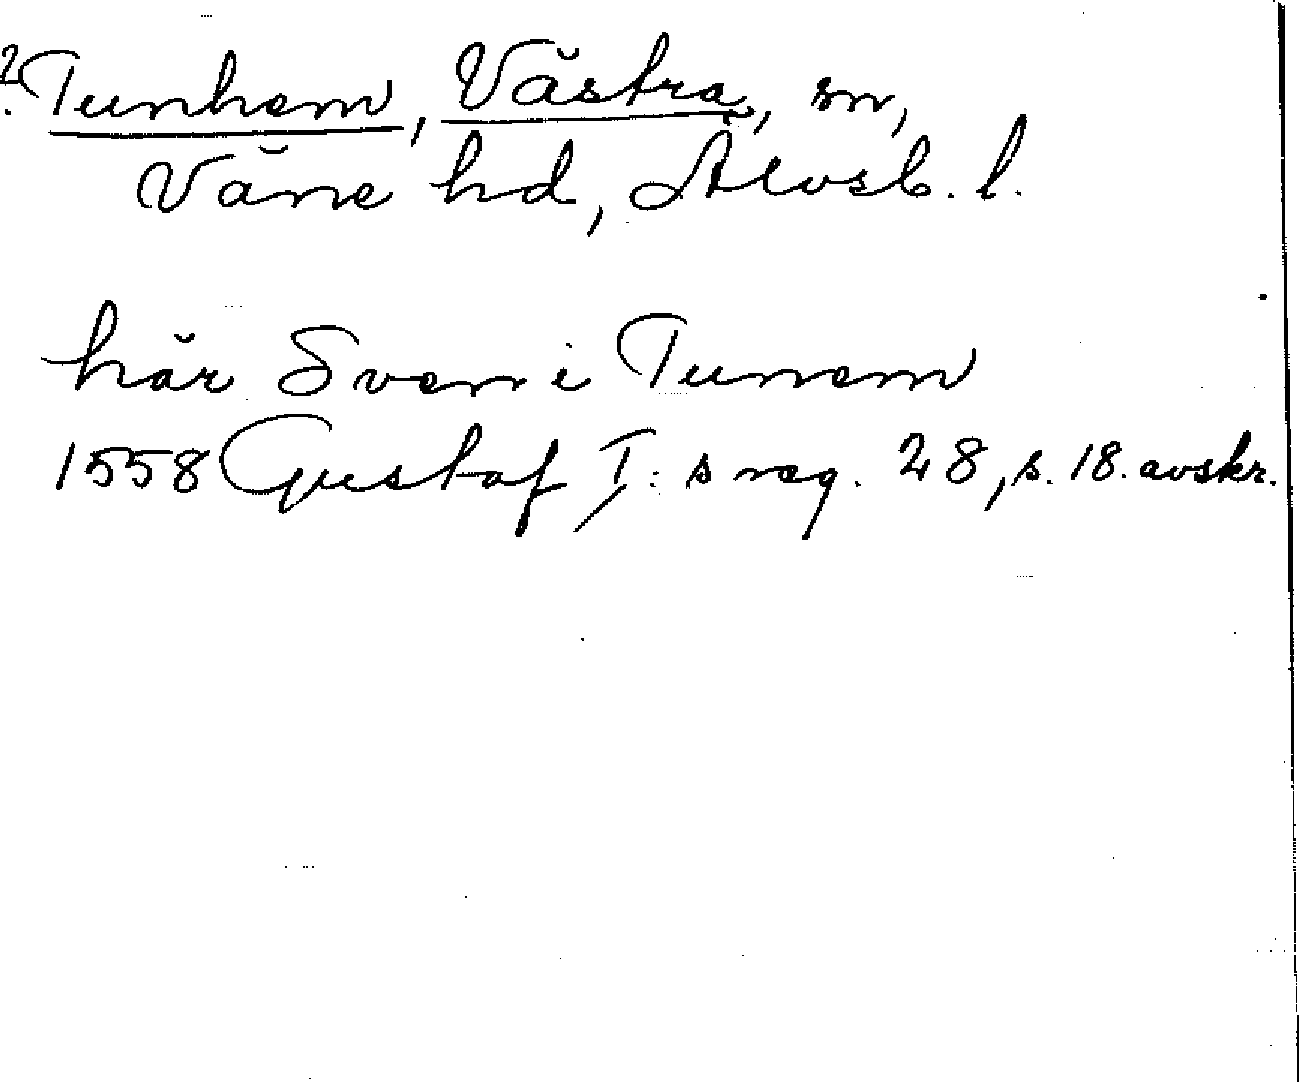 ? Tunhem, Västra, sn,
Väne hd, Älvsb. l.
här Sven i Tunem
1558 Gustaf I:s reg. 28, s. 18. avskr.